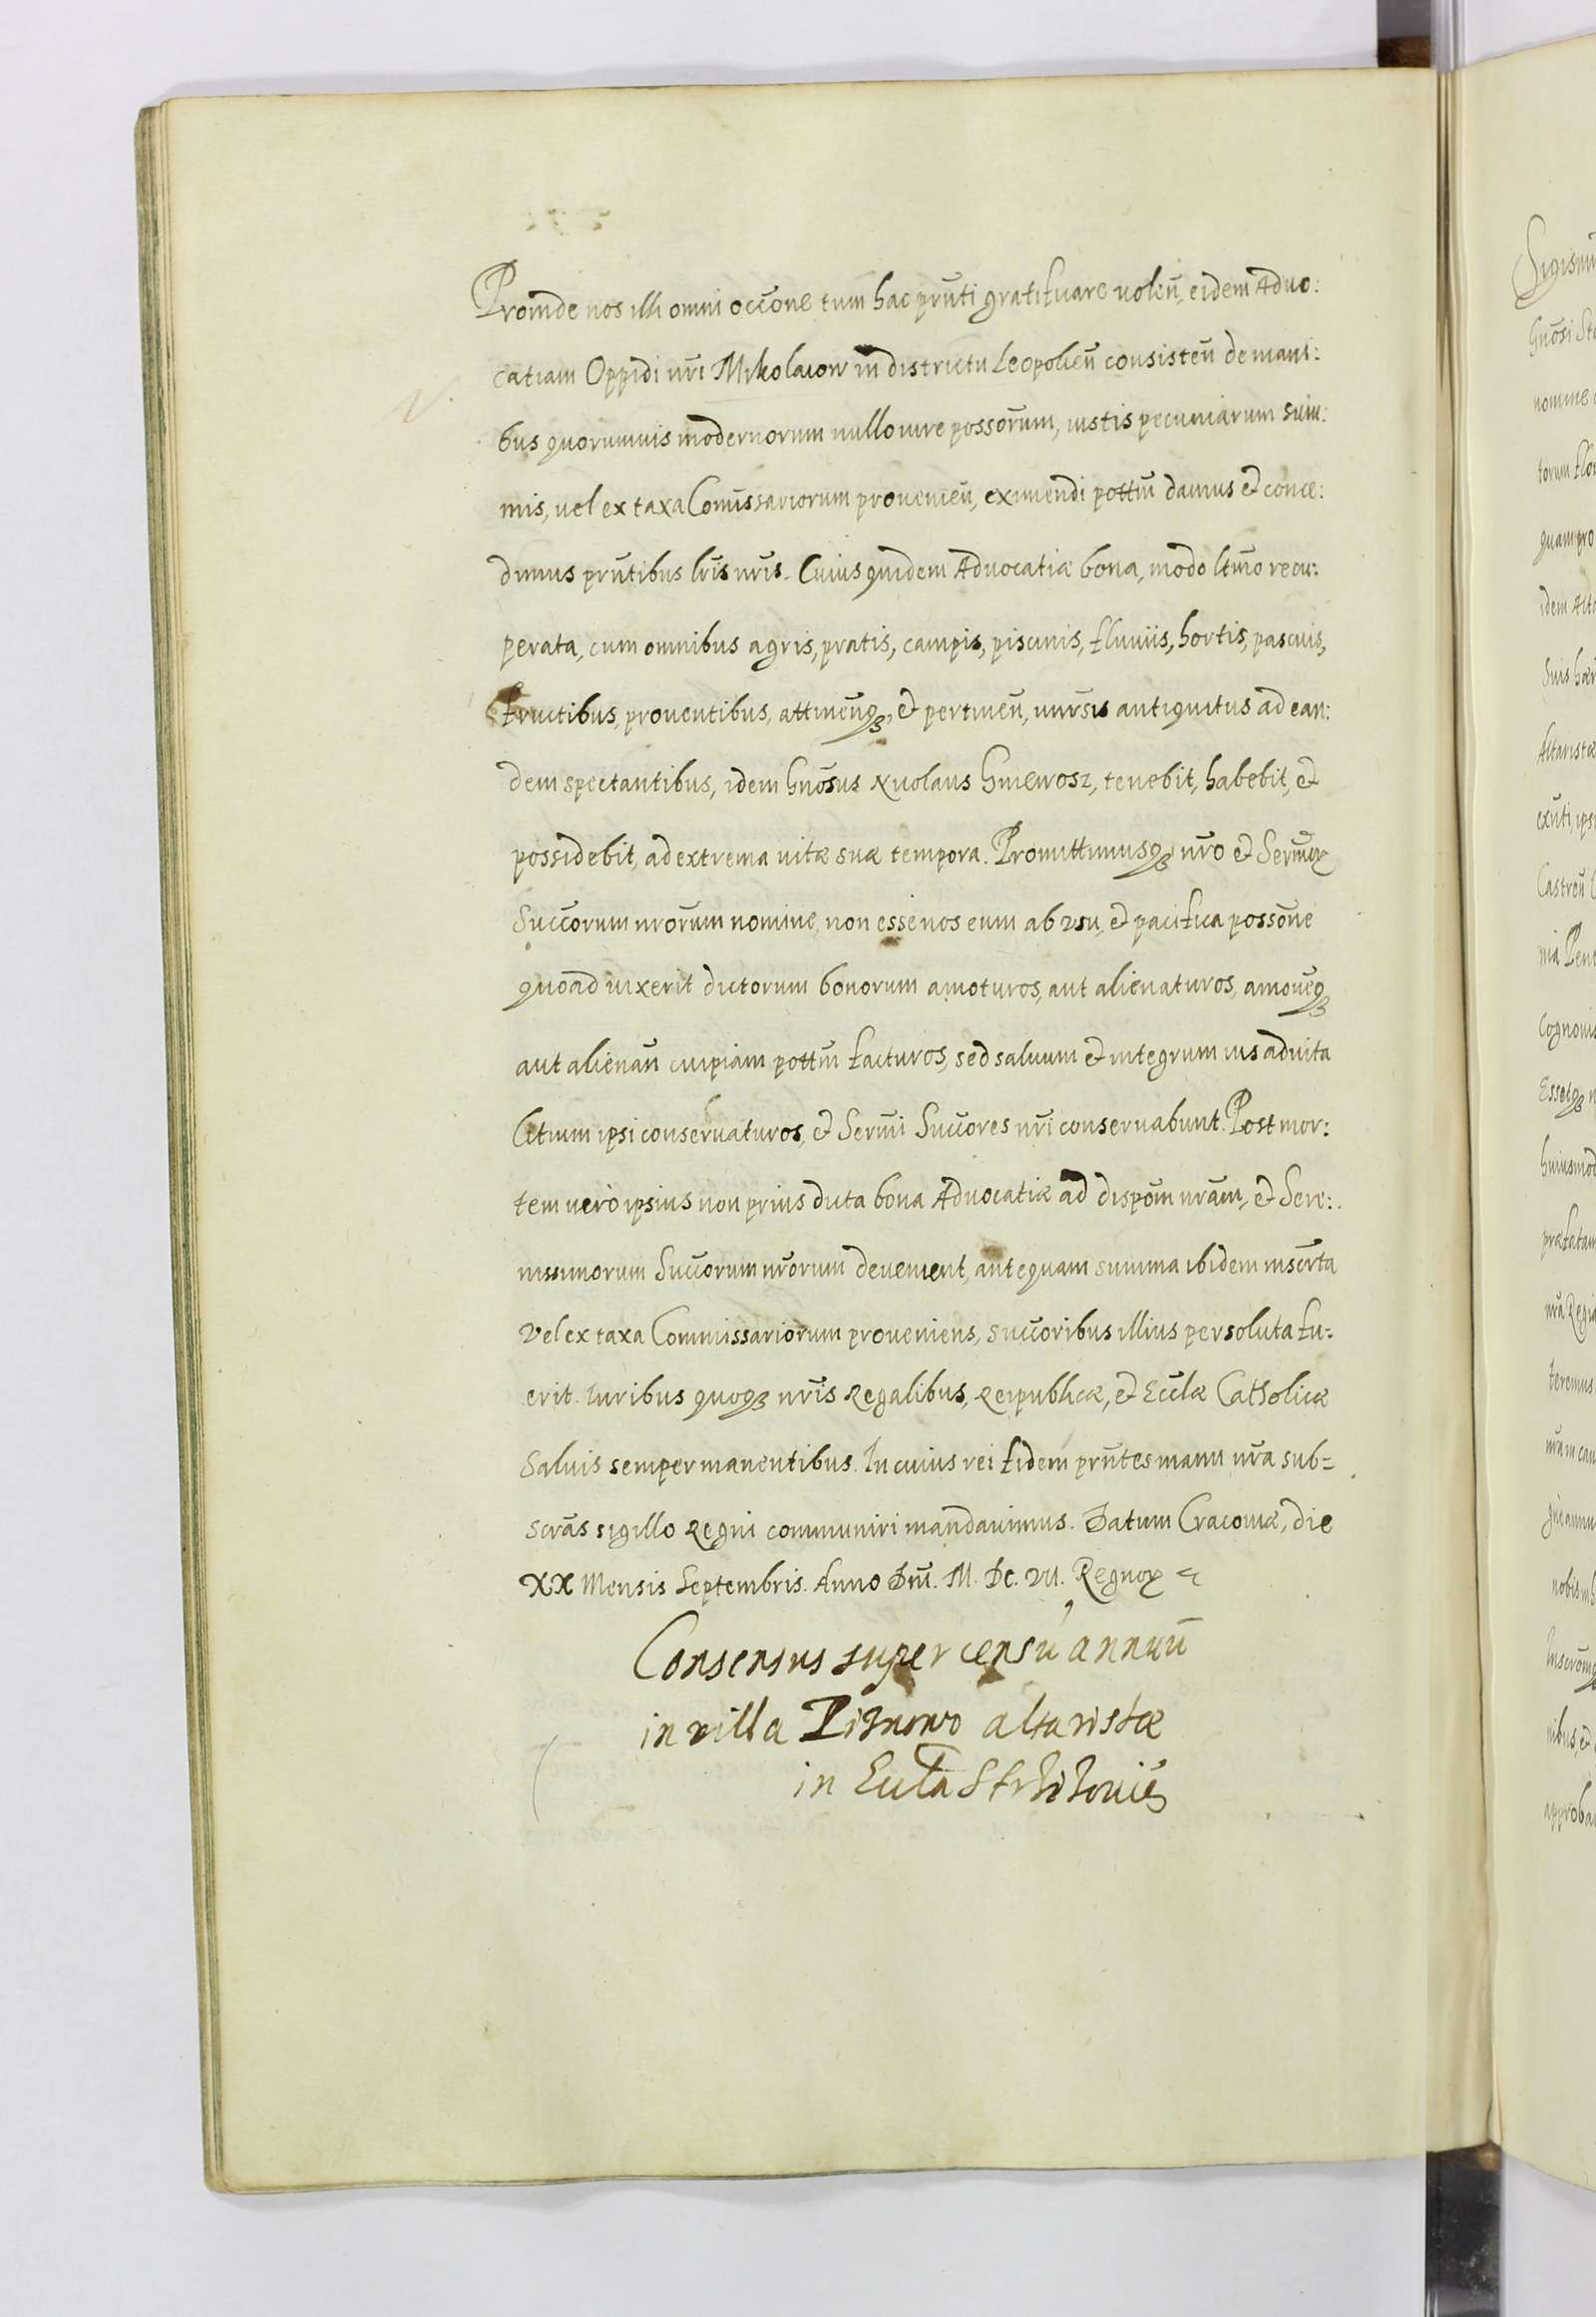 Proinde nos illi omni occōne tum hac prn̄ti gratificare volen̄, eidem Advo:
catiam Oppidi nr̄i Mikolaiow in districtu Leopolien̄ consisten̄ de mani:
bus quorumvis modernorum nullo iure possōrum, iustis pecuniarum sum:
mis, vel ex taxa Comissariorum provenien̄, eximendi pottm̄ damus et conce:
dimus prn̄tibus lr̄is nr̄is. Cuius quidem Advocatiæ bona, modo ltm̄o recu:
perata, cum omnibus agris, pratis, campis, piscinis, fluviis, hortis, pascuis,
fructibus, proventibus, attinen̄qꝫ, et pertinen̄, univr̄sis antiquitus ad ean:
dem spectantibus, idem Gnōsus Nicolaus Gniewosz, tenebit, habebit, et
possidebit, ad extrema vitæ suæ tempora. Promittimusqꝫ nr̄o et Sermoꝝ
Succorum nrōrum nomine, non esse nos eum ab usu, et pacifica possōne
quoad vixerit dictorum bonorum amoturos, aut alienaturos, amovēqꝫ
aut alienan̄ cuipiam pottm̄ facturos, sed salvum et integrum ius advita
litium ipsi conservaturos, et Serm̄i Succores nr̄i conservabunt. Post mor:
tem verò ipsius non prius dicta bona Advocatiæ ad dispōm nrām, et Sere:
nissimorum Succorum nrōrum devenient, antequam summa ibidem inscr̄ta
vel ex taxa Commissariorum proveniens, succoribus illius persoluta fu:
erit. Iuribus quoqꝫ nr̄is Regalibus, Reipublicæ, et Eccl̄æ Catholicæ
salvis semper manentibus. In cuius rei fidem prn̄tes manu nr̄a sub=
scrās sigillo Regni communiri mandavimus. Datum Cracoviæ, die
XX Mensis Septembris. Anno Dn̄i. M. Dc. VII. Regnoꝝ
Consensus super censū annuū
in villa altaristæ
in Eccl̄a